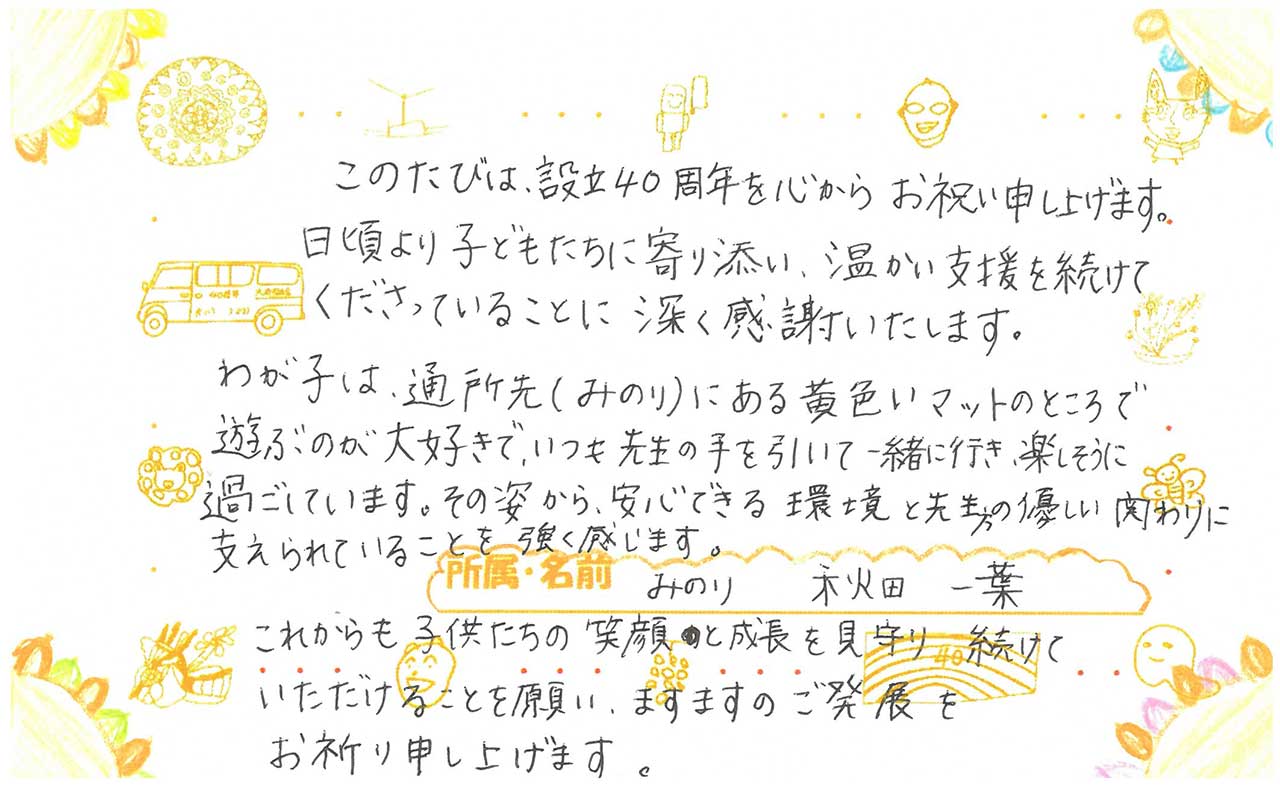 このたびは、設立40周年を心からお祝い申し上げます。
日頃より子どもたちに寄り添い、温かい支援を続けて
くださっていることに深く感謝いたします。
わが子は、通所先(みのり)にある黄色いマットのところで
遊ぶのが大好きで、いつも先生の手を引いて一緒に行き、楽しそうに
過ごしています。その姿から、安心できる環境と先生方の優しい関わりに
支えられていることを強く感じます。
所属・名前 みのり 秋田 一葉
これからも子供たちの笑顔と成長を見守り続けて
40
いただけることを願い、ますますのご発展を
お祈り申し上げます。